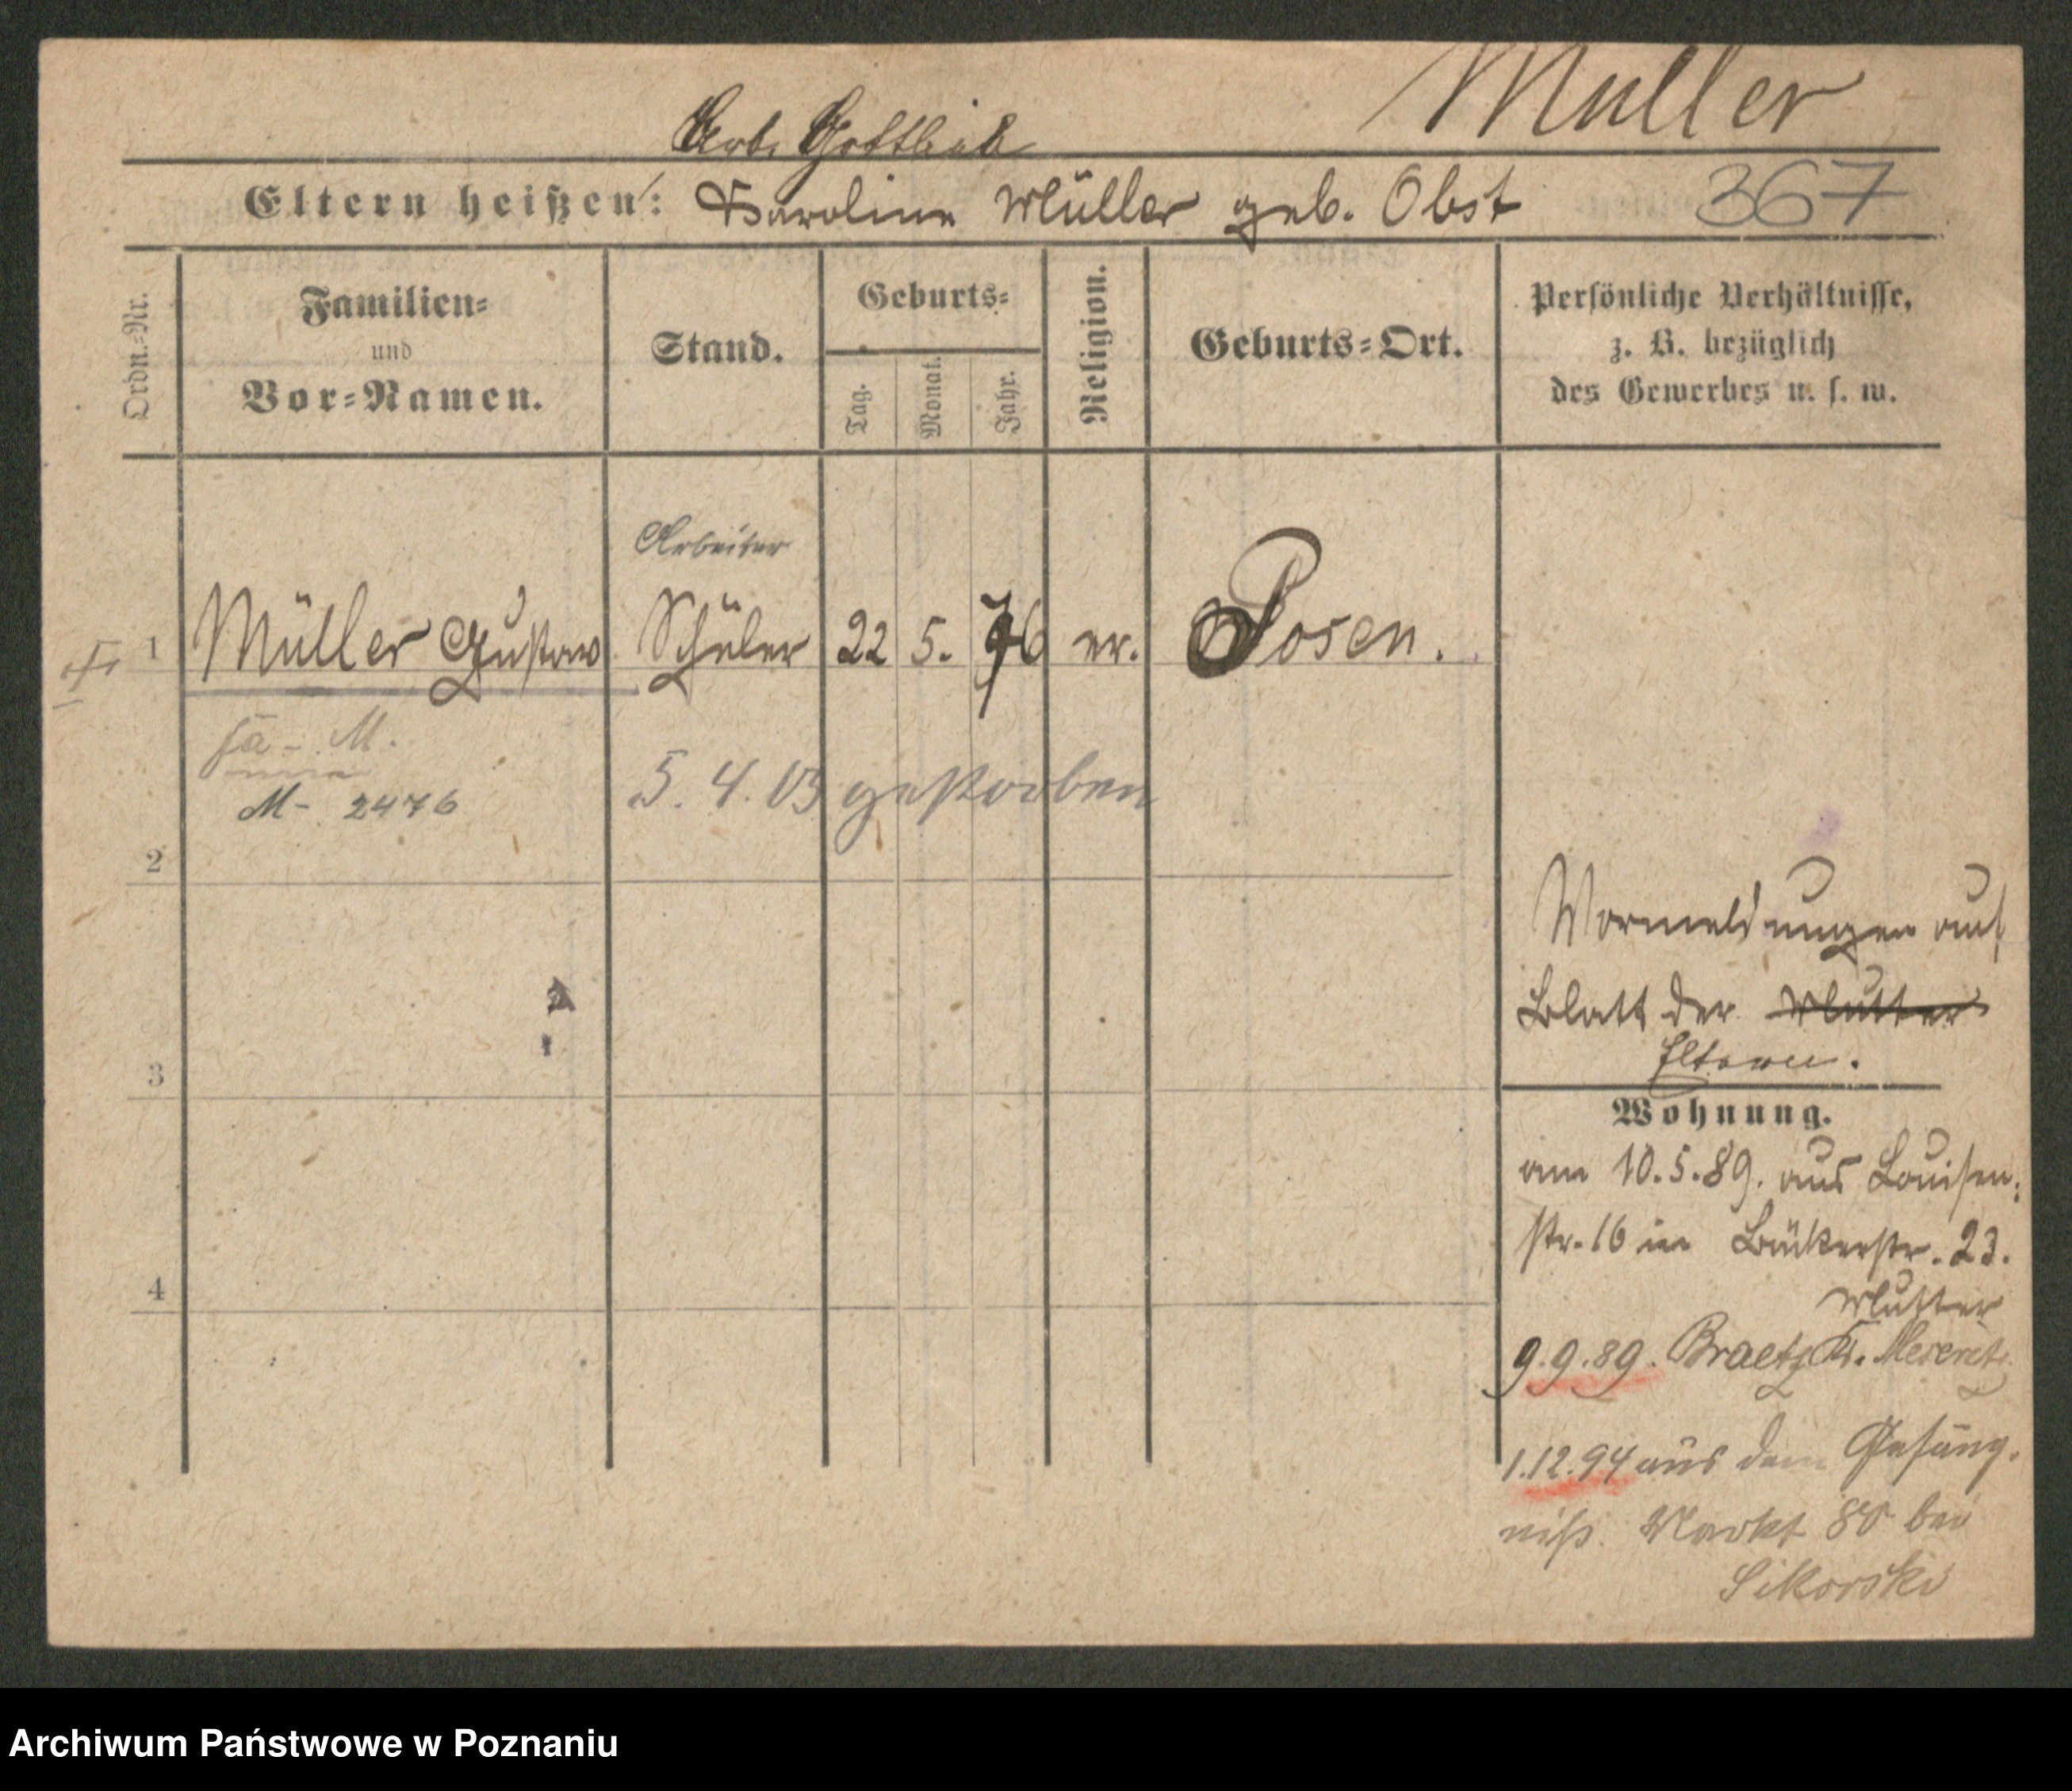 Müller
Arb. Gottlieb
Eltern heißen: Karoline Müller geb. Obst 367
Ordn.-Nr.
Familien-
und
Vor-Namen.
Stand.
Geburts-
Tag.
Monat.
Jahr.
Religion.
Geburts-Ort.
Persönliche Verhältnisse,
z. B. bezüglich
des Gewerbes u. s. w.
Arbeiter
1 Müller Gustav Schüler 22 5. 76 ev. Posen.
M.
M- 2476
5. 4. 03 gestorben
2
Vormeldungen auf
Blatt der Mutter
Eltern.
3
Wohnung.
am 10.5.89. aus Louisen-
str. 16 in Bäckerstr. 23.
4
Mutter
9.9.89. Braetz Kr. Meseritz
1.12.94 aus dem Gefäng-
niß Markt 80 bei
Sikorski
Archiwum Państwowe w Poznaniu